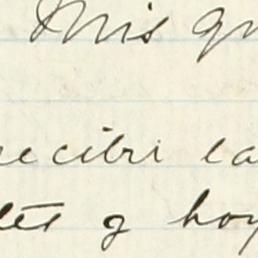 Mis qu
recibi la
tes y hoy